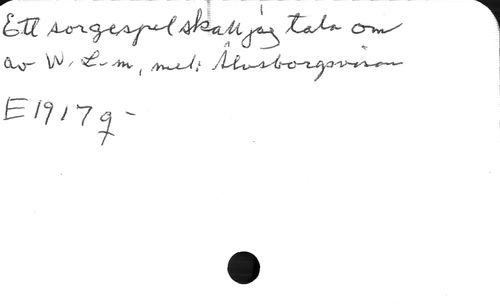 Ett sorgespel skall jag tala om
av W. L-m, mel: Älvsborgsvisan
E 1917 q -